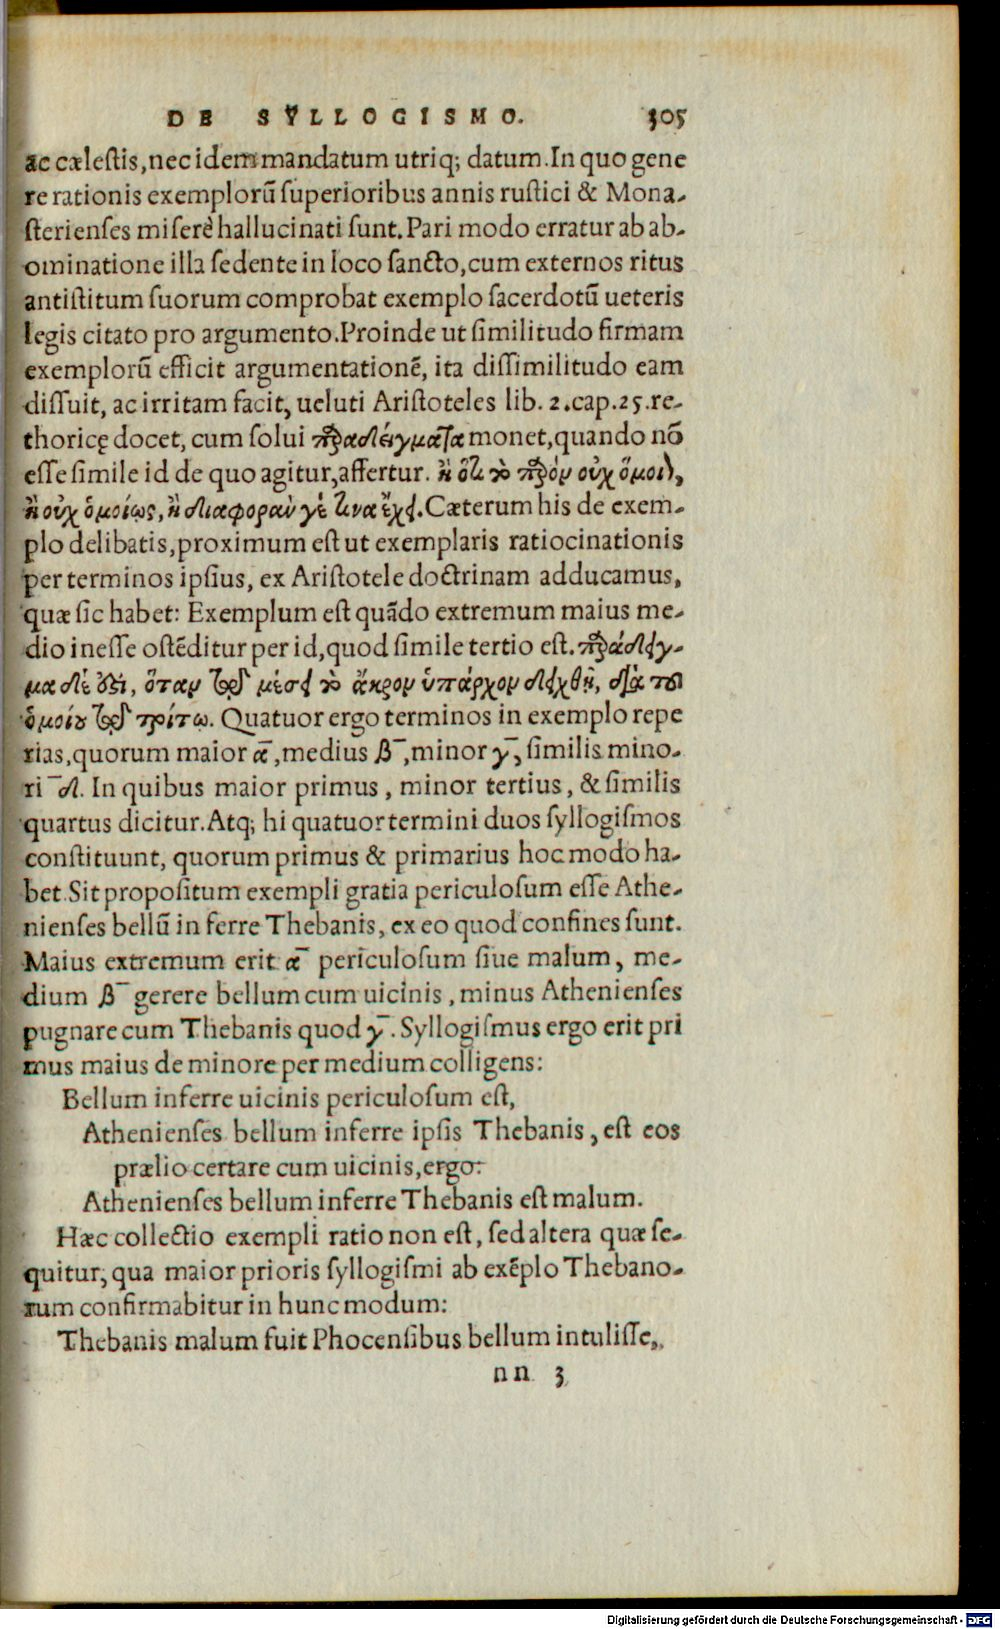 DE SYLLOGISMO. 305
ac cælestis, nec idem mandatum utriq; datum. In quo gene
re rationis exemplorũ superioribus annis rustici & Mona-
sterienses miserè hallucinati sunt. Pari modo erratur ab ab-
ominatione illa sedente in loco sancto, cum externos ritus
antistitum suorum comprobat exemplo sacerdotũ ueteris
legis citato pro argumento. Proinde ut similitudo firmam
exemplorũ efficit argumentationẽ, ita dissimilitudo eam
dissuit, ac irritam facit, ueluti Aristoteles lib. 2. cap. 25. re-
thoricę docet, cum solui παραδείγματα monet, quando nõ
esse simile id de quo agitur, affertur. ἢ ὅτι τὸ παρὸν οὐχ ὅμοιον,
ἢ οὐχ ὁμοίως, ἢ διαφορὰν γέ τινα ἔχει. Cæterum his de exem-
plo delibatis, proximum est ut exemplaris ratiocinationis
per terminos ipsius, ex Aristotele doctrinam adducamus,
quæ sic habet: Exemplum est quãdo extremum maius me-
dio inesse ostẽditur per id, quod simile tertio est. παράδειγ-
μα δέ ὅζι, ὅταν τῷ μέσῳ τὸ ἄκρον ὑπάρχον δειχθῇ, διὰ τοῦ
ὁμοίου τῷ τρίτῳ. Quatuor ergo terminos in exemplo repe
rias, quorum maior α̅, medius β̅, minor γ̅, similis mino-
ri ̅δ. In quibus maior primus, minor tertius, & similis
quartus dicitur. Atq; hi quatuor termini duos syllogismos
constituunt, quorum primus & primarius hoc modo ha-
bet. Sit propositum exempli gratia periculosum esse Athe-
nienses bellũ in ferre Thebanis, ex eo quod confines sunt.
Maius extremum erit α̅ periculosum siue malum, me-
dium β̅ gerere bellum cum uicinis, minus Athenienses
pugnare cum Thebanis quod γ̅. Syllogismus ergo erit pri
mus maius de minore per medium colligens:
Bellum inferre uicinis periculosum est,
Athenienses bellum inferre ipsis Thebanis, est eos
prælio certare cum uicinis, ergo:
Athenienses bellum inferre Thebanis est malum.
Hæc collectio exempli ratio non est, sed altera quæ se-
quitur, qua maior prioris syllogismi ab exẽplo Thebano-
rum confirmabitur in hunc modum:
Thebanis malum fuit Phocensibus bellum intulisse,
nn 3
Digitalisierung gefördert durch die Deutsche Forschungsgemeinschaft - DFG